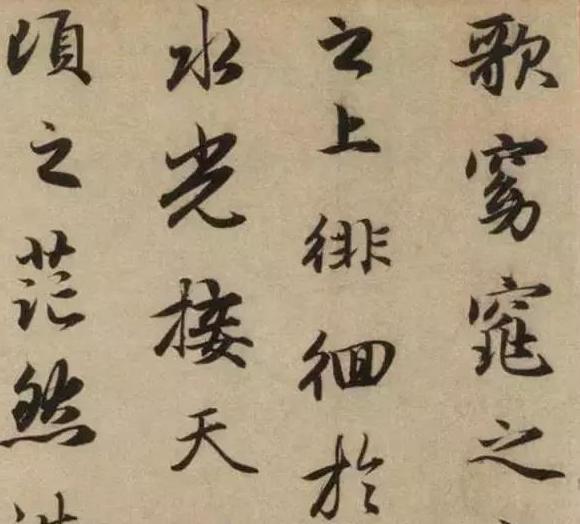 歌窈窕之
之上徘徊於
水光接天
頃之茫然